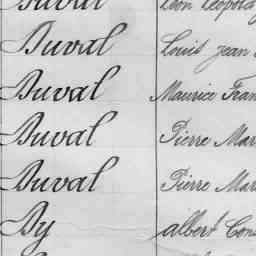 Duval Léon Léopold
Duval Louis Jean
Duval Maurice Fran
Duval Pierre Mar
Duval Pierre Mar
Dy Albert Cons